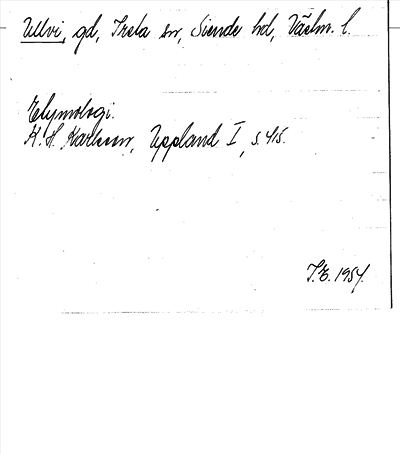 Ullvi, gd, Irsta sn, Siende hd, Västm. l.
Etymologi.
K. H. Karlsson, Uppland I, s. 415.
T.E. 1954.